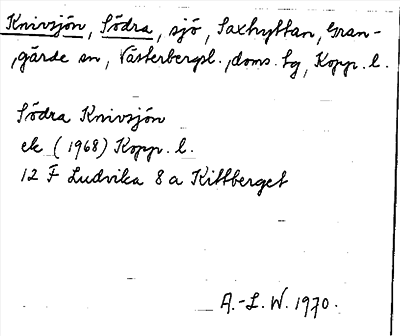 Knivsjön, Södra, sjö, Saxhyttan, Gran-
gärde sn, Västerbergsl., doms. hg, Kopp. l.
Södra Knivsjön
ek (1968) Kopp. l.
12 F Ludvika 8 a Kittberget
A.-L. W. 1970.